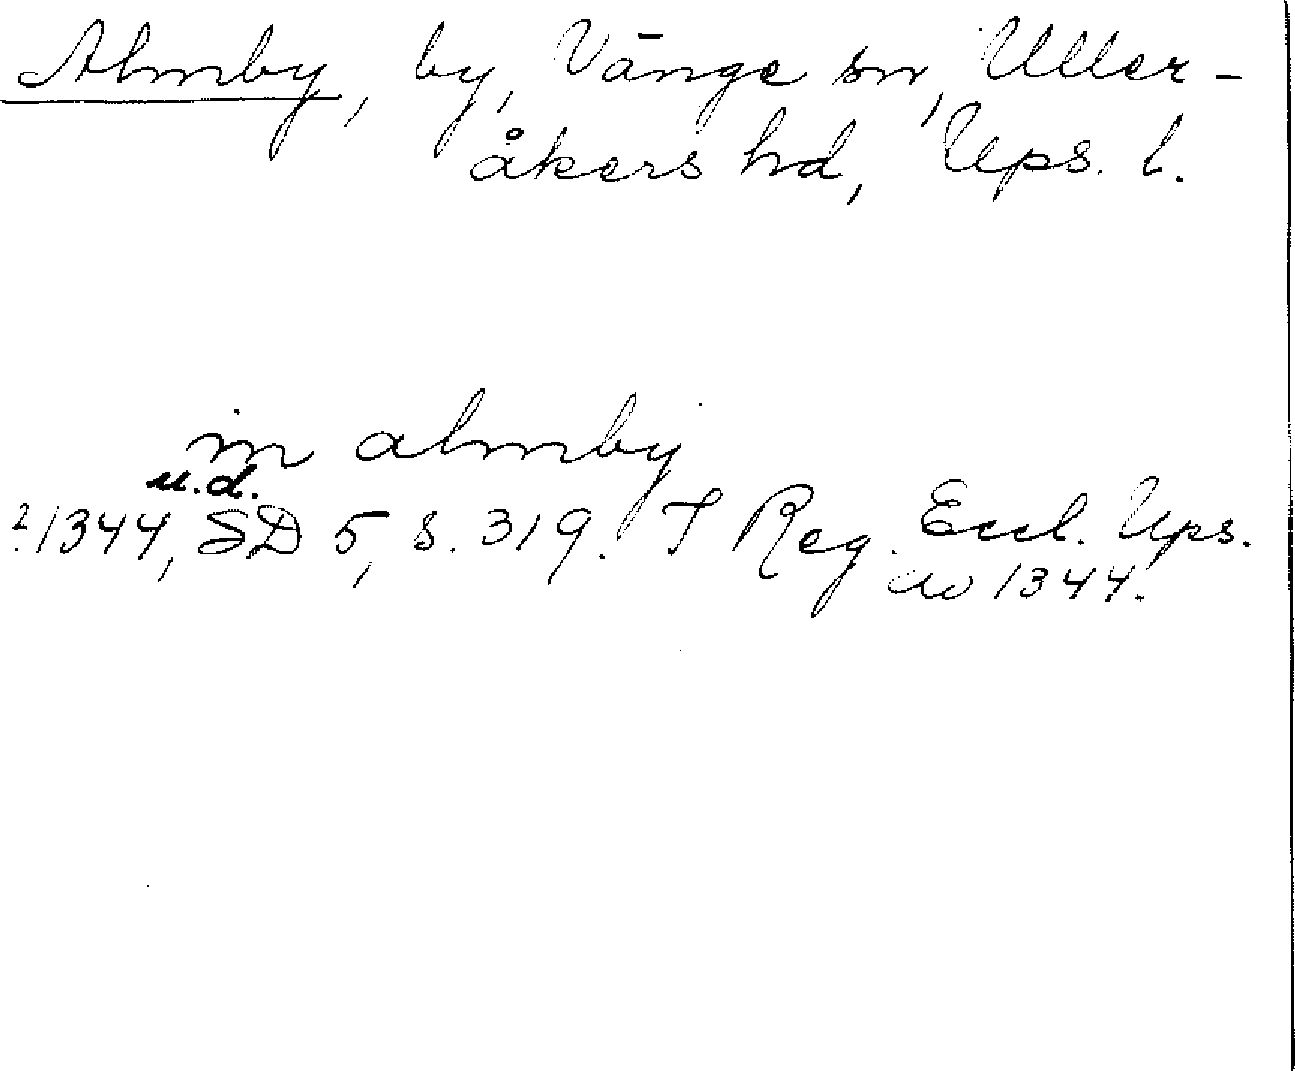 Almby, by, Vänge sn, Uller-
åkers hd, Ups. l.
in almby
u.d.
?1344, SD 5, s. 319. I Reg. Eccl. Ups.
av 1344.